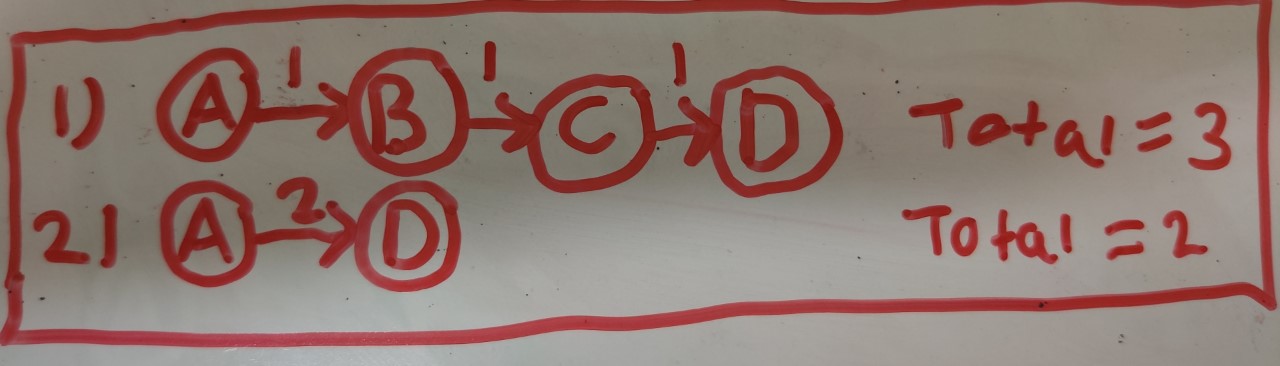 1) A 1 B 1 C 1 D Total = 3
2) A 2 D Total = 2